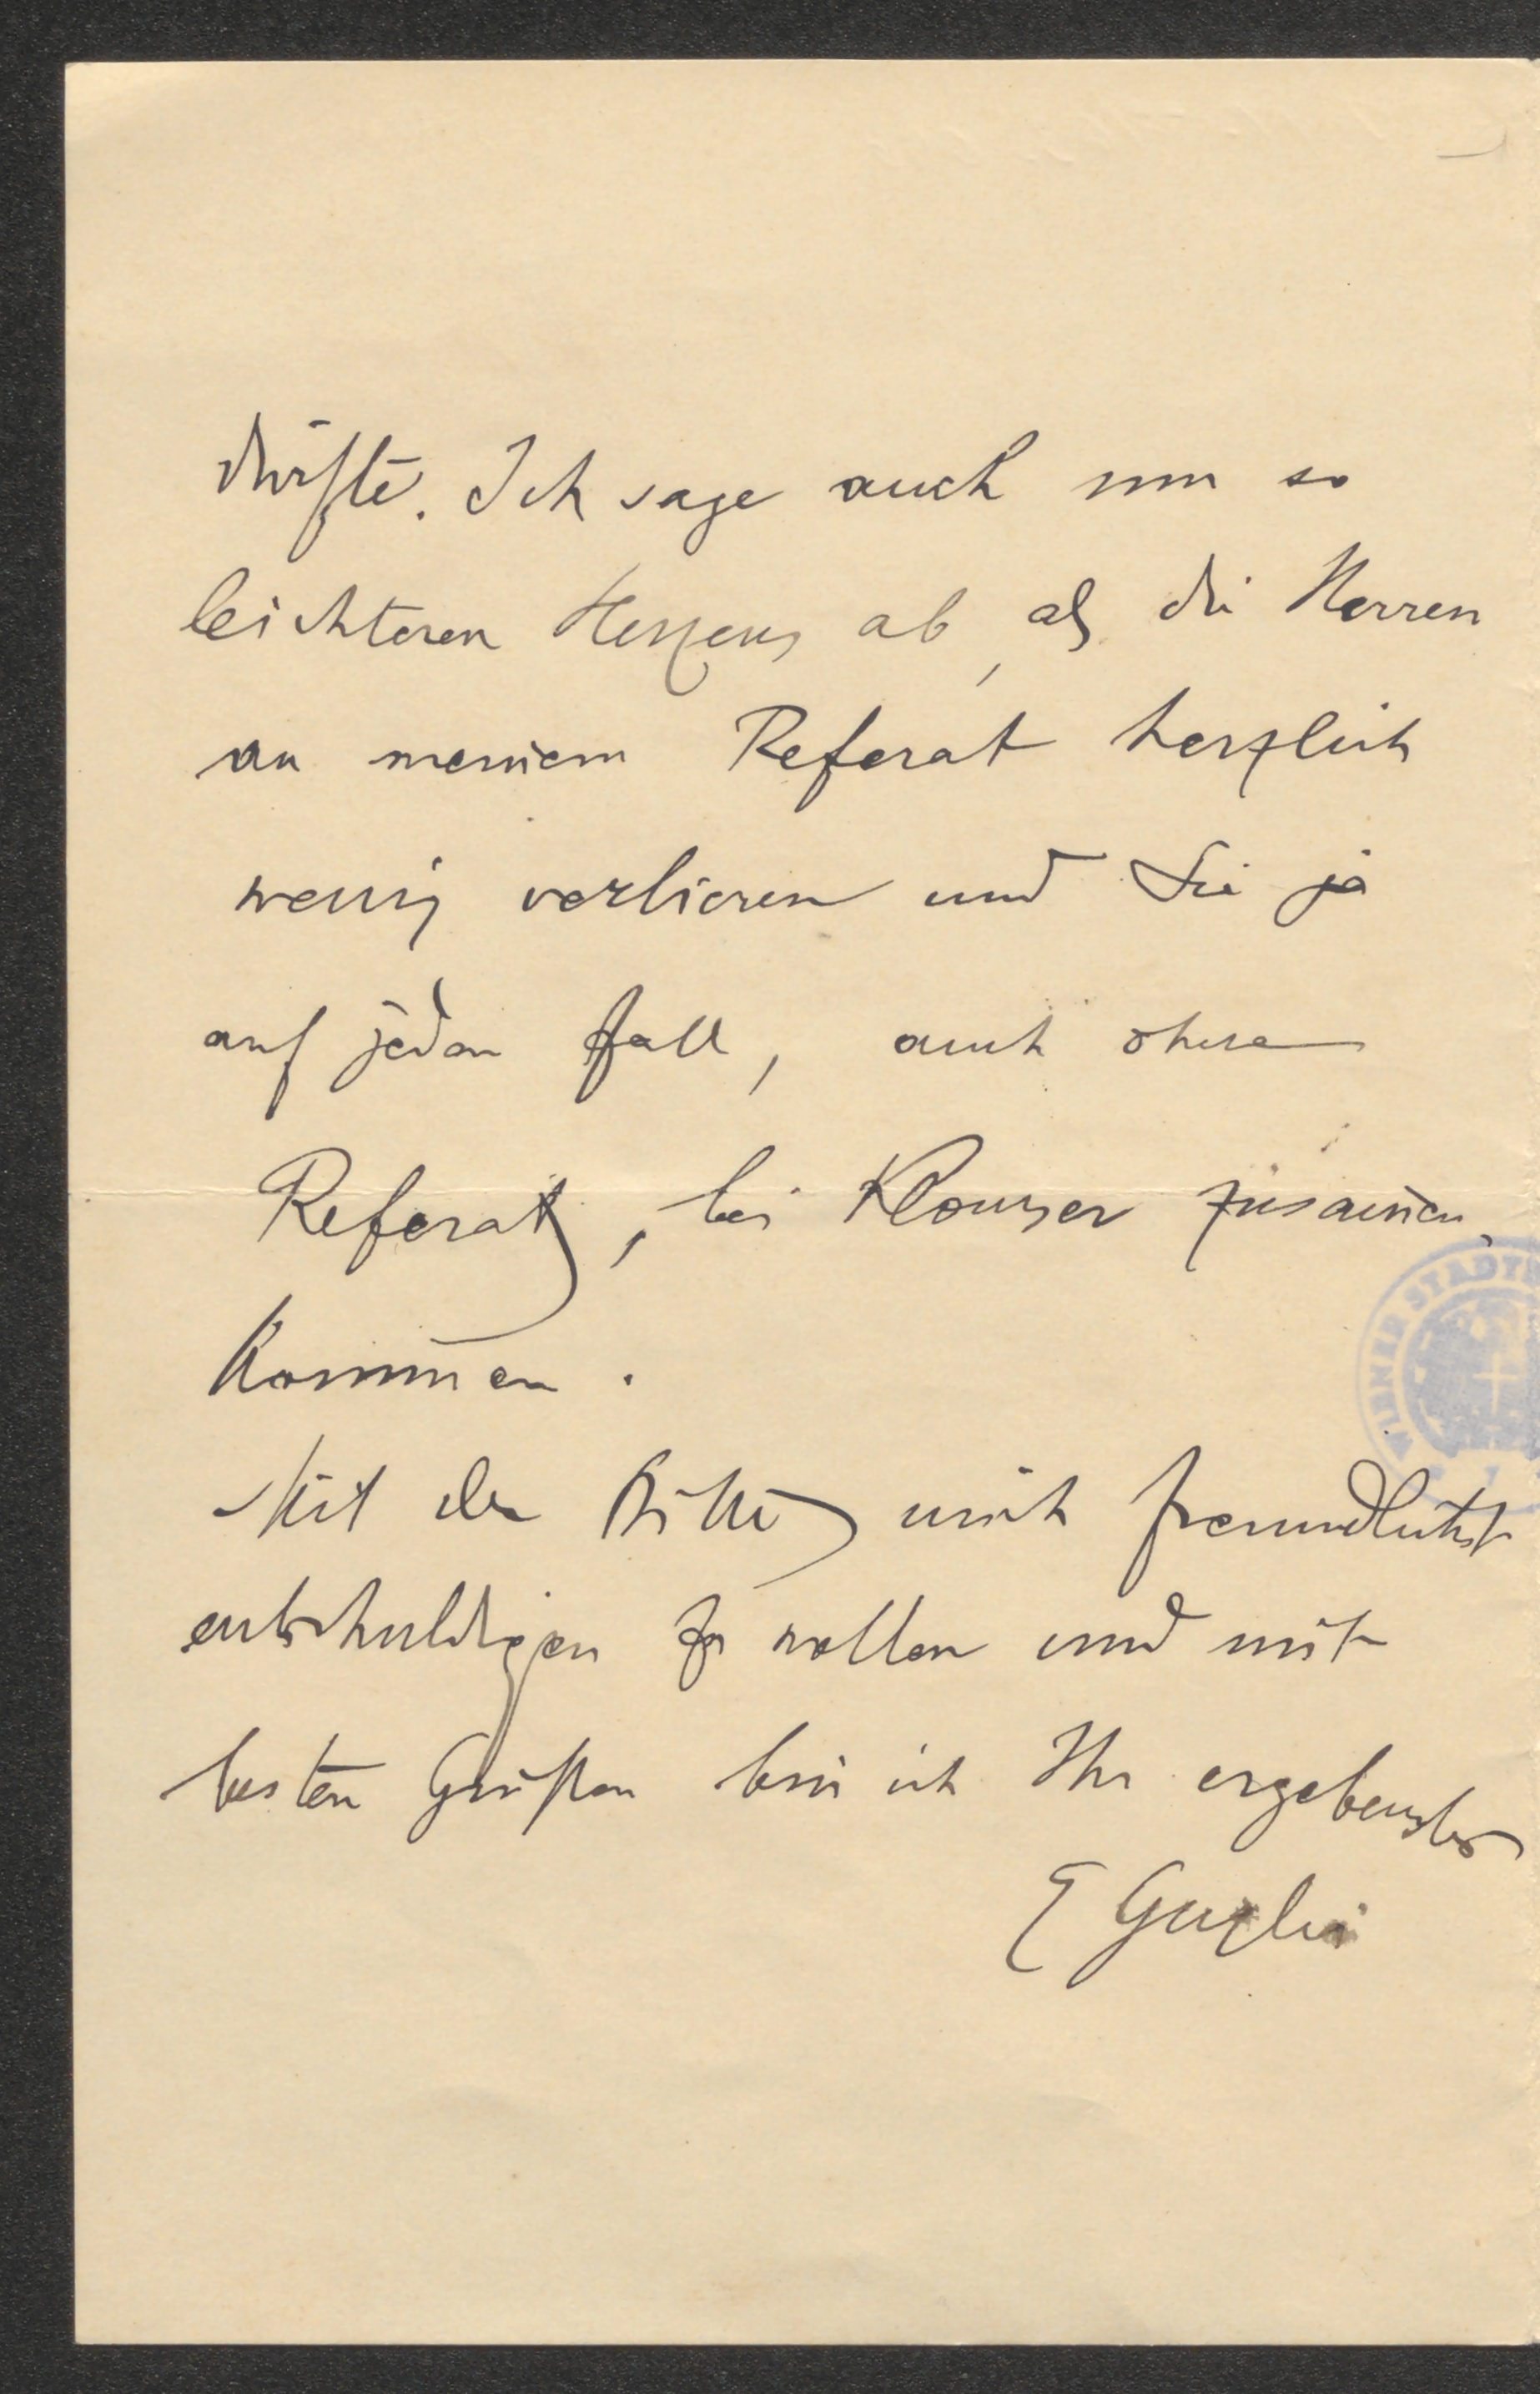 dürfte. Ich sage auch um so
leichteren Herzens ab, als die Herren
an meinem Referat herzlich
wenig verlieren und Sie ja
auf jeden Fall, auch ohne
Referat, bei Klomser zusammen
kommen.
Mit der Bitte mich freundlichst
entschuldigen zu wollen und mit
besten Grüßen bin ich Ihr ergebenster
E Guglia
WIENER STADT